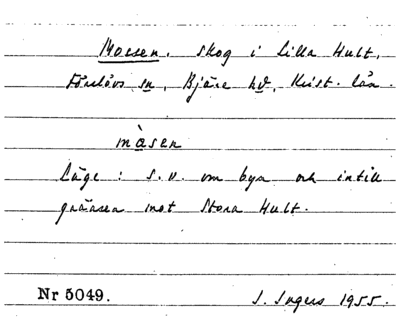 Mossen. skog i Lilla Hult,
Förslövs sn, Bjäre hd, Krist. län.
màsen
Läge: s.v. om byn och intill
gränsen mot Stora Hult.
Nr 5049. I. Ingers 1955.